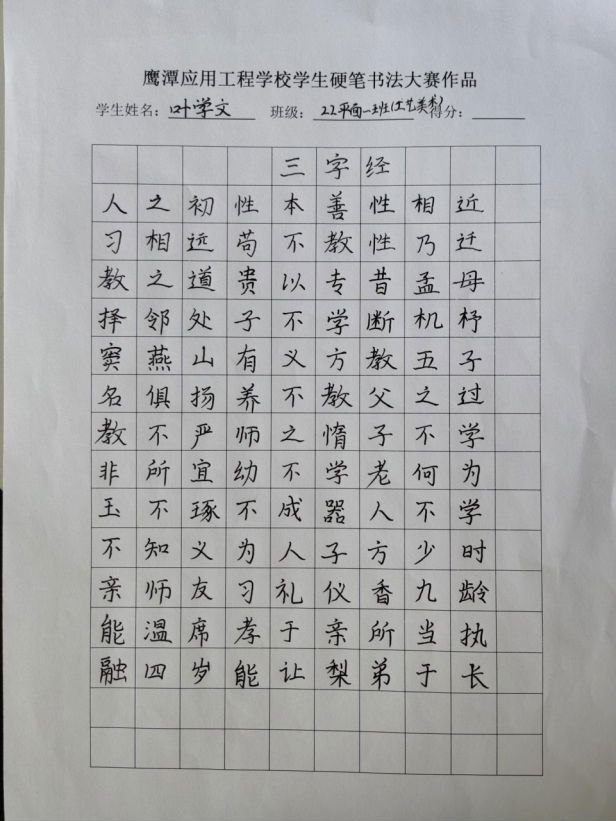 鹰潭应用工程学校学生硬笔书法大赛作品
学生姓名：叶学文 班级：22平面一班(工艺美术) 得分：
三字经
人之初性本善性相近
习相远苟不教性乃迁
教之道贵以专昔孟母
择邻处子不学断机杼
窦燕山有义方教五子
名俱扬养不教父之过
教不严师之惰子不学
非所宜幼不学老何为
玉不琢不成器人不学
不知义为人子方少时
亲师友习礼仪香九龄
能温席孝于亲所当执
融四岁能让梨弟于长